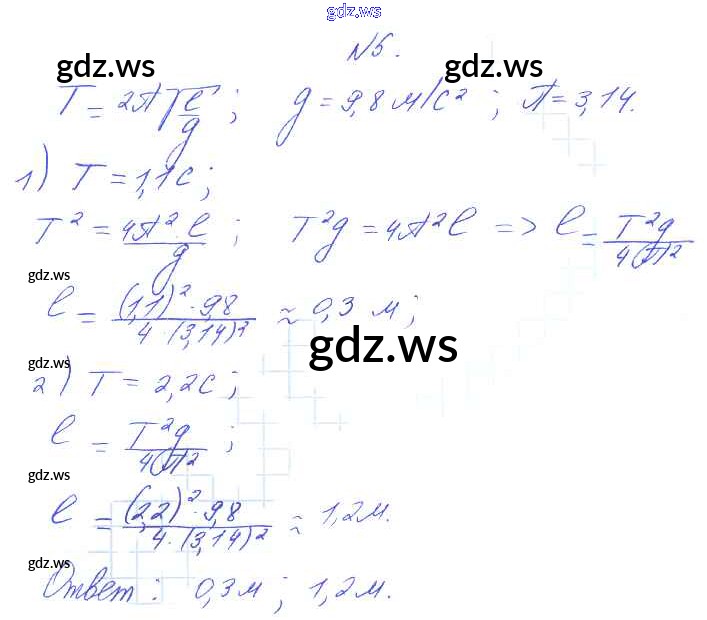 gdz.ws
№5.
gdz.ws gdz.ws
T = 2π√(l/g) ; g = 9,8 м/с² ; π = 3,14.
1) T = 1,1с ;
T² = 4π² l / g ; T²g = 4π²l => l = T²g / 4(π)²
gdz.ws
l = (1,1)² · 9,8 / 4 · (3,14)² ≈ 0,3 м ;
gdz.ws
gdz.ws
2) T = 2,2с ;
l = T²g / 4(π)² ;
gdz.ws
l = (2,2)² · 9,8 / 4 · (3,14)² ≈ 1,2м.
gdz.ws
Ответ : 0,3м ; 1,2м.